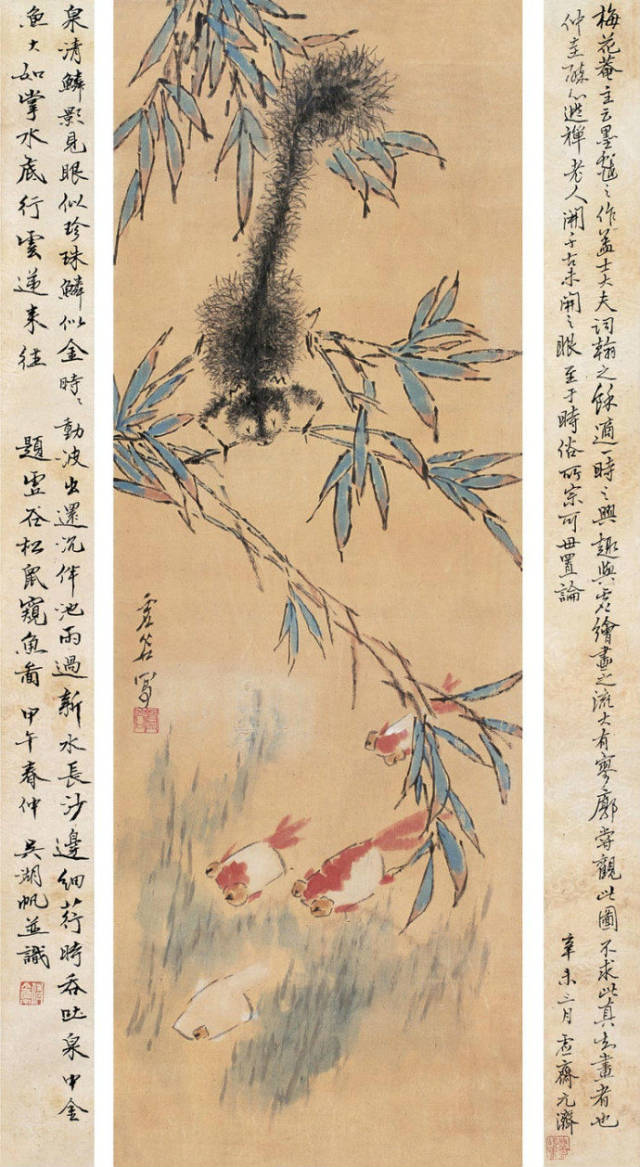 梅花菴主云墨戲之作蓋士大夫詞翰之餘適一時之興趣與夫繪畫之流大有寥廓嘗觀此圖不求此真出畫者也
仲圭醉心逃禪老人開千古未開之眼至于時俗所宗可毋置論
辛未三月虛齋元濟
虛谷寫
泉清鱗影見眼似珍珠鱗似金時々動波出還沉伴池雨過新水長沙邊細荇時吞吐泉中金
魚大如掌水底行雲遞來往 題虛谷松鼠窺魚圖 甲午春仲 吳湖帆並識